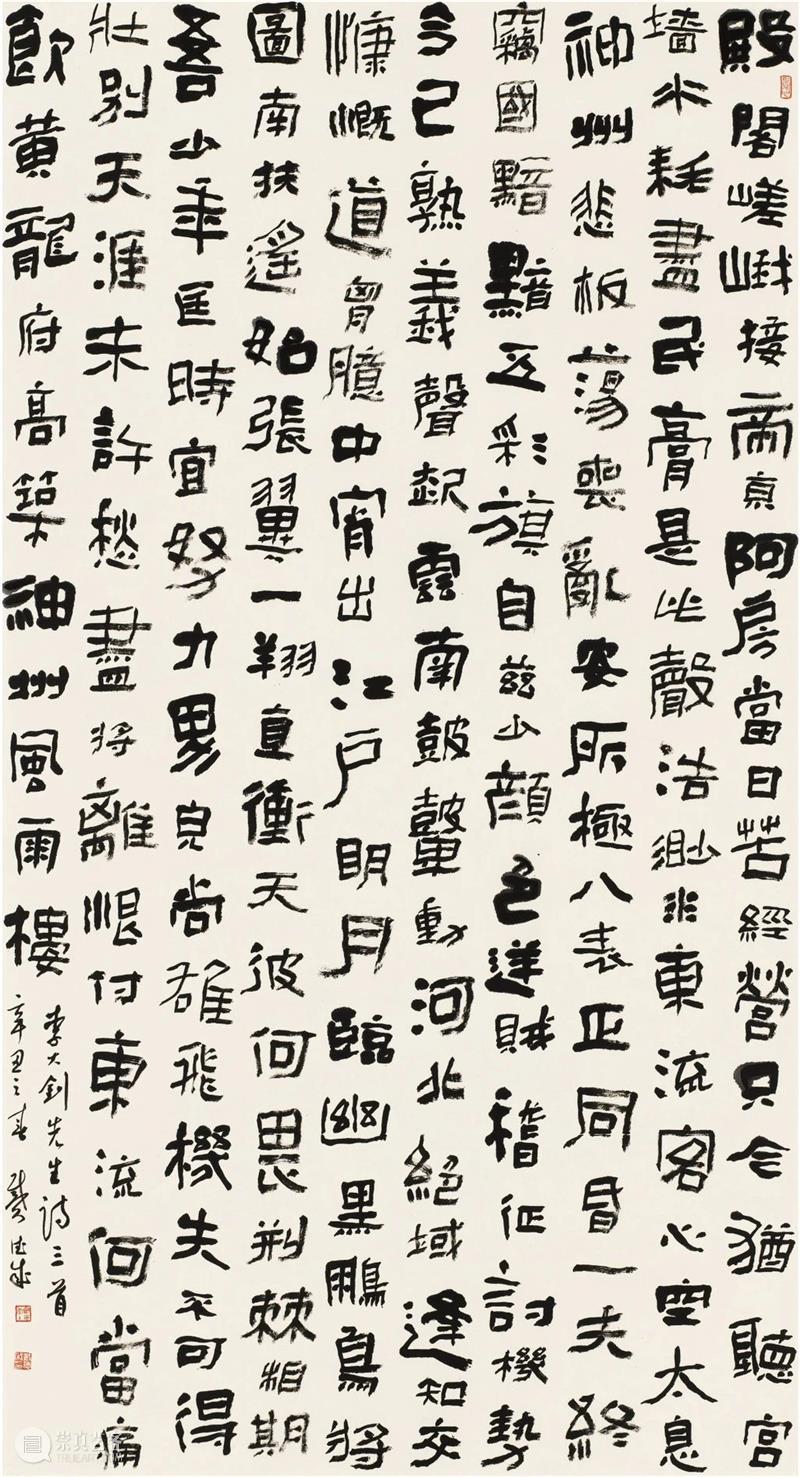 殿閣嵯峨接帝京阿房當日苦經營只今猶聽宮
墙水耗盡民膏是此聲浩渺水東流客心空太息
神州悲板蕩喪亂安所極八表正同昏一夫終
竊國黯黯五彩旗自茲少顏色逆賊稽征討機勢
今已熟義聲起雲南鼓鼙動河北絕域逢知交
慷慨道胷臆中宵出江戶明月臨幽黑鵬鳥將
圖南扶遙始張翼一翔直衝天彼何畏荆棘相期
吾少年匡時宜努力男兒尚雄飛機失不可得
壯別天涯未許愁盡將離恨付東流何當痛
飲黃龍府高築神州風雨樓
李大釗先生詩三首
辛丑之春
崇真艺客